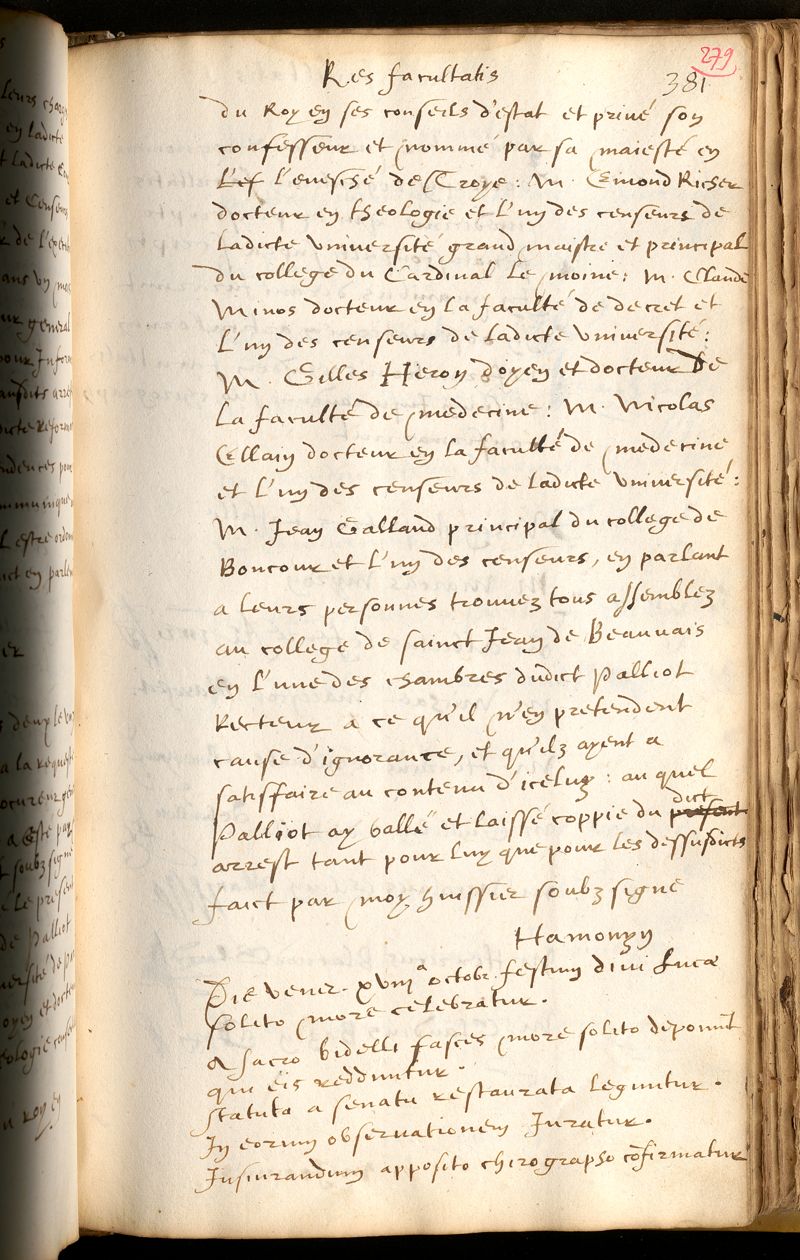 279
Res facultatis
381
du Roy en ses conseils d'estat et privé son
confesseur et nommé par sa maiesté en
L'ef l'evesché de Troye : M. Emond Richer
docteur en theologie et l'un des censeurs de
ladicte université grand maistre et principal
du college du Cardinal le moine : M. Claude
Minos docteur en la faculté de decret et
l'un des censeurs de ladicte université :
M. Gilles Heron doyen et docteur de
la faculté de medecine : M. Nicolas
Ellain docteur en la faculté de medecine
et l'un des censeurs de ladicte université :
M. Jean Galland principal du college de
Boncour et l'un des censeurs, en parlant
a leurs personnes trouvez tous assemblez
au college de sainct Jean de Beauvais
en l'une des chambres dudict Palliot
Recteur a ce qu'il n'en pretendent
cause d'ignorance, et qu'ilz ayent a
satisfaire au contenu d'iceluy : au quel
Palliot ay ballé et laissé coppie du present dict
arrest tant pour luy que pour les dessusdicts
faict par moy huissier soubz signé
Hamonyn
Die vener. xviii a octobr. festum divi Lucæ
solito more celebratur.
A sacro bidelli fasces more solito deponunt
qui eis redduntur.
Statuta a senatu restaurata leguntur.
In eorum observationem Juratur.
Jusiurandum apposito chirograpso cõfirmatur